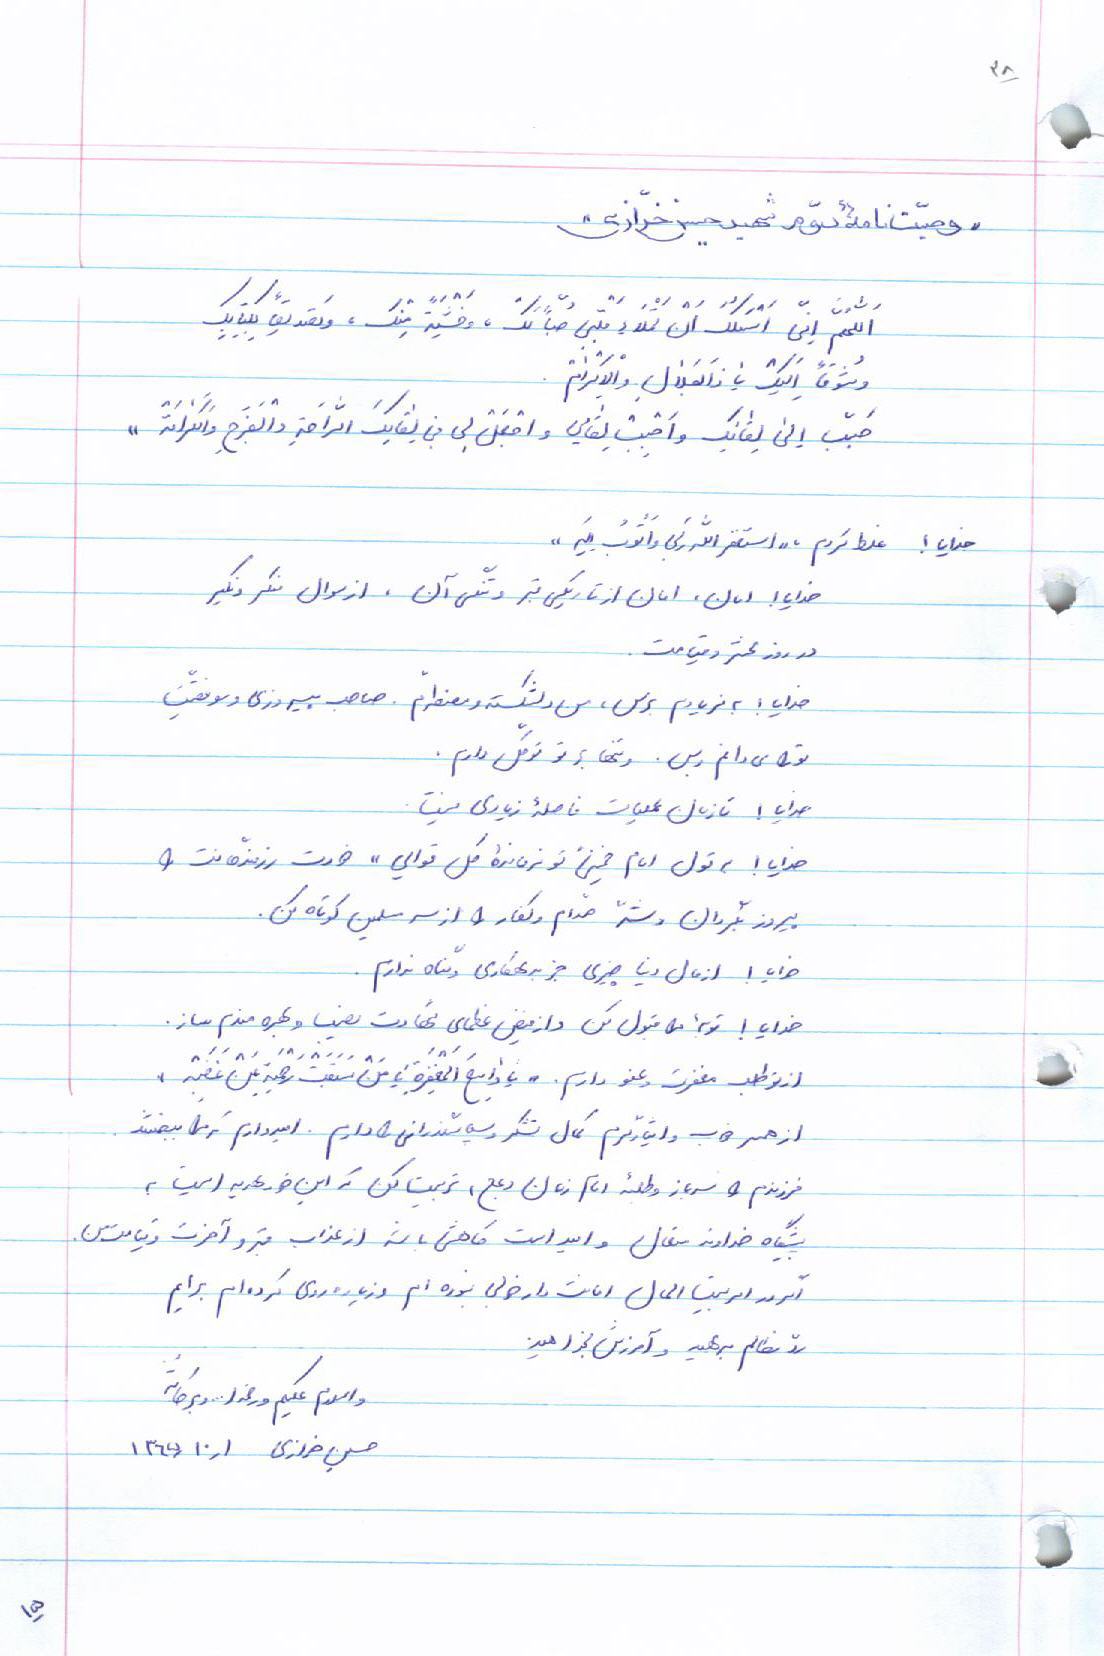 ۳۸
«وصیّت نامهٔ دوّم شهید حسین خرّازی»
اَللّهُمَّ اِنّی اَسْئَلُکَ اَنْ تَمْلَاَ قَلْبی حُبّاً لَکَ، وَخَشْیَةً مِنْکَ، وَتَصْدیقاً بِکِتابِکَ
وَشَوْقاً اِلَیْکَ یا ذَالْجَلالِ وَالْاِکْرامِ.
حَبِّبْ اِلیَّ لِقائَکَ وَاَحْبِبْ لِقائی وَاجْعَلْ لی فی لِقائِکَ الرّاحَةِ وَالْفَرَجِ وَالْکَرامَةِ»
خدایا! غلط کردم، «استغفرالله ربی وَاَتُوبُ اِلَیه»
خدایا! امان، امان از تاریکی قبر و تنگی آن، از سوال منکر و نکیر
در روز محشر و قیامت.
خدایا! به فریادم برس، من دلشکسته و مضطرّم. صاحب پیروزی و موفقیّت
تو را می‌دانم و بس. و تنها بر تو توکّل دارم.
خدایا! تا زمان عملیات فاصلهٔ زیادی نیست.
خدایا! به قول امام خمینی «تو فرمانده کل قوایی» خودت رزمندگانت را
پیروز بگردان و شرّ صدّام و کفار را از سر مسلمین کوتاه کن.
خدایا! از مال دنیا چیزی جز بدهکاری و گناه ندارم.
خدایا! توبهٔ مرا قبول کن و از فیض عظمای شهادت نصیب و بهره مندم ساز.
از تو طلب مغفرت و عفو دارم. «یا واسِعَ الْمَغْفِرَةِ یا مَنْ سَبَقَتْ رَحْمَتُهُ غَضَبَهُ»
از همسر خوب و کمال تشکر و سپاسگذرانی را دارم. امیدوارم که مرا ببخشد.
فرزندم را سرباز و طلبهٔ امام زمان (عج)، تربیت کن که این خود هدیه ایست به
پیشگاه خداوند متعال و امید است کاهش باشد از عذاب قبر و آخرت و قیامت من.
اگر در امر بیت المال امانت دار خوبی نبوده ام و زیاده روی کرده ام برایم
ردّ مظالم بدهید و آمرزش بخواهید.
والسلام علیکم و رحمة‌الله و برکاته
حسین خرازی ۱۳۶۵/۱۰/۱
۱۵